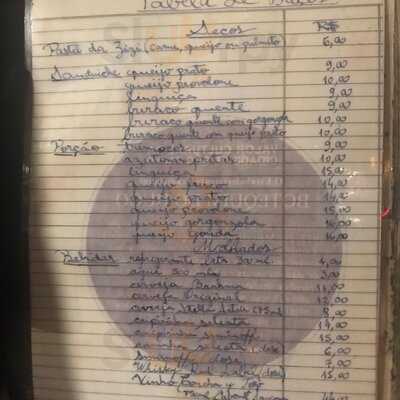 Tabela de Preços
Secos R$
Pasta do Zézi (carne, queijo ou palmito) 6,00
Sanduiche queijo prato 9,00
queijo provolone 10,00
linguiça 9,00
buraco quente 9,00
buraco quente com gorgonzola 10,00
buraco quente com queijo prato 10,00
Porção tremoços 9,00
azeitonas pretas 10,00
linguiça 15,00
queijo fresco 14,00
queijo prato 14,00
queijo provolone 15,00
queijo gorgonzola 16,00
queijo gouda 16,00
Molhados
Bebidas refrigerante lata 350 ml 4,00
água 500 ml 3,00
cerveja Brahma 11,00
cerveja Original 12,00
cerveja Stella Artois 8,00
caipirinha selecta 14,00
caipirinha smirnoff 15,00
selecta dose 6,00
Smirnoff dose 7,00
Whisky Red Label (dose) 15,00
Vinho